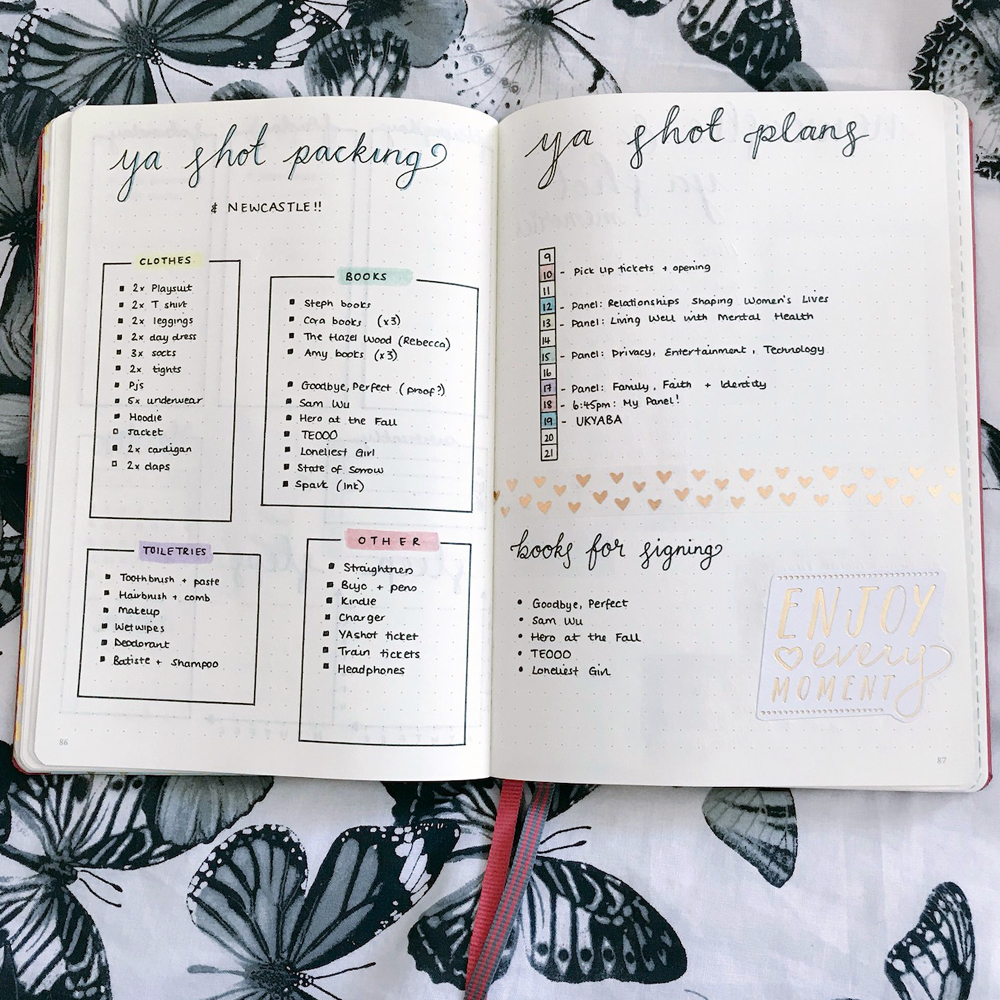 ya shot packing
& NEWCASTLE!!
CLOTHES
2x Playsuit
2x T shirt
2x leggings
2x day dress
3x socks
2x tights
Pjs
5x underwear
Hoodie
Jacket
2x cardigan
2x claps
BOOKS
Steph books
Cara books (x3)
The Hazel Wood (Rebecca)
Amy books (x3)
Goodbye, Perfect (proof?)
Sam Wu
Hero at the Fall
TEOOO
Loneliest Girl
State of Sorrow
Spark (Int)
TOILETRIES
Toothbrush + paste
Hairbrush + comb
Makeup
Wetwipes
Deodorant
Batiste + Shampoo
OTHER
Straightners
Bujo + pens
Kindle
Charger
YAshot ticket
Train tickets
Headphones
86
ya shot plans
9
10 - Pick up tickets + opening
11
12 - Panel: Relationships Shaping Women's Lives
13 - Panel: Living Well with Mental Health
14
15 - Panel: Privacy, Entertainment, Technology
16
17 - Panel: Family, Faith + Identity
18 - 6:45pm: My Panel!
19 - UKYABA
20
21
books for signing
Goodbye, Perfect
Sam Wu
Hero at the Fall
TEOOO
Loneliest Girl
ENJOY
every
MOMENT
87